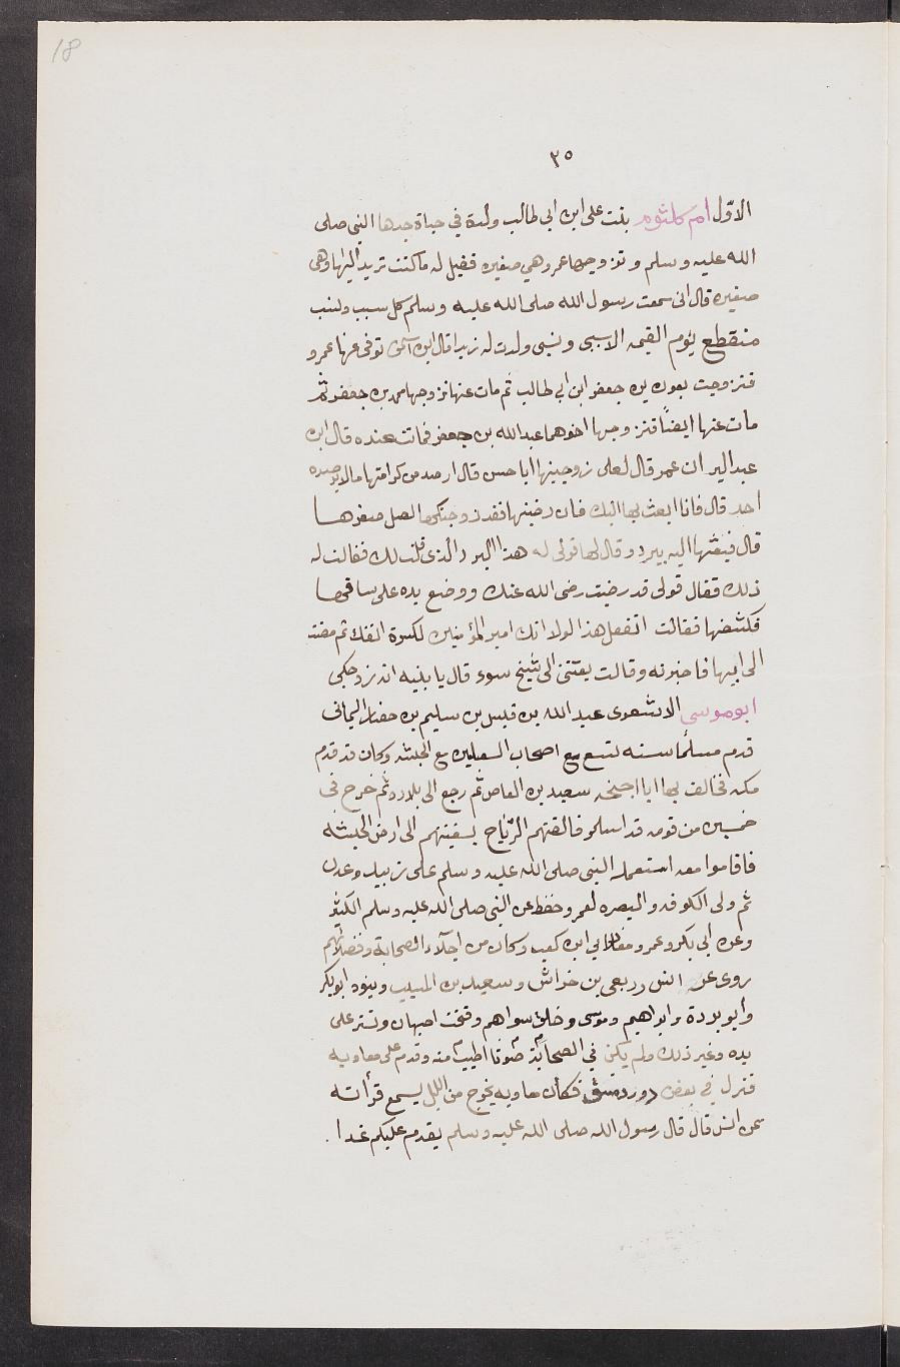 18
٣٥
الاوّل ام كلثوم بنت على ابن ابى طالب ولدة في حياة جدها النبى صلى
الله عليه وسلم وتزوجها عمر وهي صغيره فقيل له ما كنت تريد اليها وهى
صغيره قال انى سمعت رسول الله صلى الله عليه وسلم كل سبب ونسب
منقطع يوم القيمه الا سببى ونسبى ولدت له زيدا قال ابن توفى عنها عمر و
فتزوجت بعون بن جعفر ابن ابى طالب ثم مات عنها تزوجها محمد بن جعفر ثم
مات عنها ايضاً فتزوجها اخوهما عبد الله بن جعفر فماتت عنده قال ابن
عبد البر ان عمر قال لعلى زوجينها ابا حسن قال ارصد من كرامتها ما لا يرصده
احد قال فانا ابعث بها اليك فان رضيتها فقد زوجتكها صغرها
قال فبعثها اليه ببرد وقال لها قولى له هذا البرد الذى قلت لك فقالت له
ذلك فقال قولى قد رضيت رضى الله عنك ووضع يده على ساقها
فكشفها فقالت اتفعل هذا لولا انك امير المؤمنين لكسرة انفك ثم مضت
الى ابيها فاخبرته وقالت بعثتنى الى شيخ سوء قال يا بنيه انه زوجكى
ابو موسى الاشعرى عبد الله بن قيس بن سليم بن حضار اليمانى
قدم مسلماً سنه تسع مع اصحاب السفينين مع الحبشه وكان قد قدم
مكه فخالف بها ابا اجنحه سعيد بن العاص ثم رجع الى بلاده ثم خرج فى
خمسين من قومه قد اسلمو فالقتهم الرّياح بسفينتهم الى ارض الحبشه
فاقاموا معه استعمله النبى صلى الله عليه وسلم على زبيد وعدن
ثم ولى الكوفه والبصره لعمر وحفظ عن النبى صلى الله عليه وسلم الكثير
وعن ابى بكر وعمر ومعاذ وابى ابن كعب وكان من اجلّاء الصحابة وفضلائهم
روى عنه انس وربعى بن خراش وسعيد بن المسيب وبنوه ابو بكر
وابو بردة وابراهيم وموسى وخلق سواهم وفتحت اصبهان وتستر على
يده وغير ذلك ولم يكن في الصحابة صوتا اطيب منه وقدم على معاويه
فنزل في بعض دور دمشق فكان معاويه يخرج من الليل يسمع قرأته
عن انس قال قال رسول الله صلى الله عليه وسلم يقدم عليكم غدا .